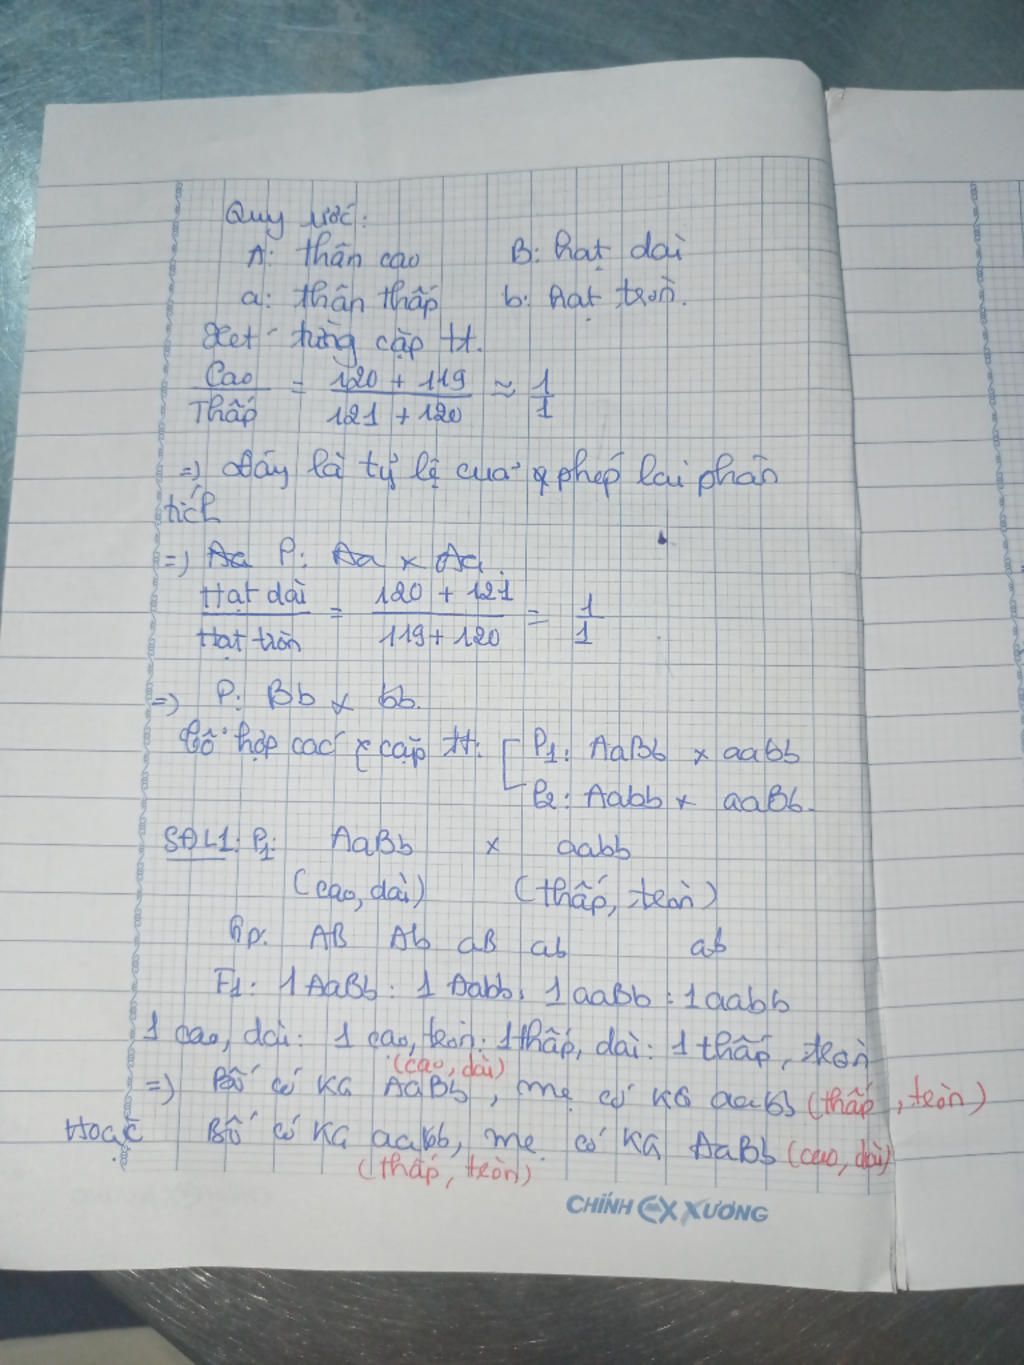 Quy ước:
A: thân cao B: hạt dài
a: thân thấp b: hạt tròn.
Xét từng cặp tt.
Cao = 120 + 119 ≈ 1
Thấp 121 + 120 1
=> Đây là tỷ lệ của phép lai phân
tích
=> Aa P: Aa x Aa.
Hạt dài = 120 + 121 = 1
Hạt tròn 119 + 120 1
=> P: Bb x bb.
Tổ hợp các cặp tt: P1: AaBb x aabb
P2: Aabb x aaBb.
SĐL1: P1: AaBb x aabb
(cao, dài) (thấp, tròn)
Gp: AB Ab aB ab ab
F1: 1AaBb : 1Aabb : 1aaBb : 1aabb
1 cao, dài : 1 cao, tròn : 1 thấp, dài : 1 thấp, tròn
(cao, dài)
=> Bố có KG AaBb, mẹ có KG aabb (thấp, tròn)
Hoặc Bố có KG aabb, mẹ có KG AaBb (cao, dài)
(thấp, tròn)
CHÍNH XƯƠNG